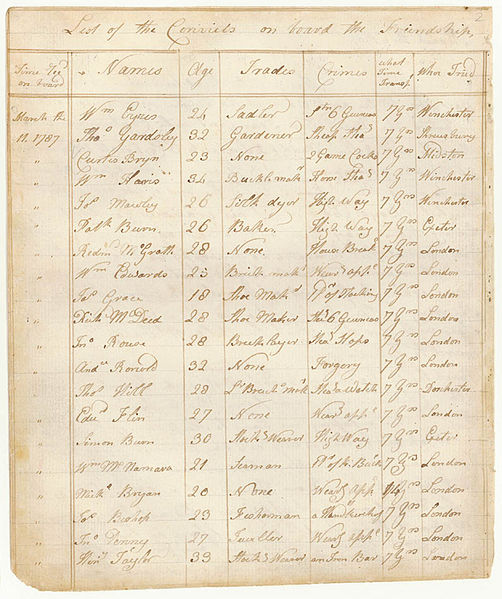 2
List of the Convicts on board the Friendship,
Time Recd on board Names Age Trades Crimes what Time Transp. Wher Tried
March the Wm Eyres 24 Sadler 6 Guineas 7 Yrs Winchester
11. 1787 Thos Yardsley 32 Gardener Sheep 7 Yrs Shrewsbury
" Curtis Bryn 23 None 2 Game Cocks 7 Yrs
" Wm Haris 34 Buckle makr Horse 7 Yrs Winchester
" Mawley 26 Silk dyer High Way 7 Yrs Winchester
" Patk Burn 26 Baker High Way 7 Yrs Exeter
" Redmd McGrath 28 None House Break 7 Yrs London
" Wm Edwards 23 Brick makr Wearg appl 7 Yrs London
" Jos Grace 18 Shoe Makr Pr of Stocking 7 Yrs London
" McDeed 28 Shoe Maker 6 Guineas 7 Yrs London
" Jno Rouse 28 Bricklayer 7 Yrs London
" Andw 32 None Forgery 7 Yrs London
" Thos Hill 28 Watch 7 Yrs Dorchester
" Edwd Flin 27 None Wearg appl 7 Yrs London
" Simon Burn 30 Stockg Weaver High Way 7 Yrs Exeter
" Wm McNamara 21 Seaman 7 Yrs London
" Michl Bryan 20 None Wearg appl 14 Yrs London
" Jos Bishop 23 Fisherman a Handkerchef 7 Yrs London
" Jno Penney 27 Wearg appl 7 Yrs London
" Henry Taylor 33 Stockg Weaver an Iron Bar 7 Yrs London